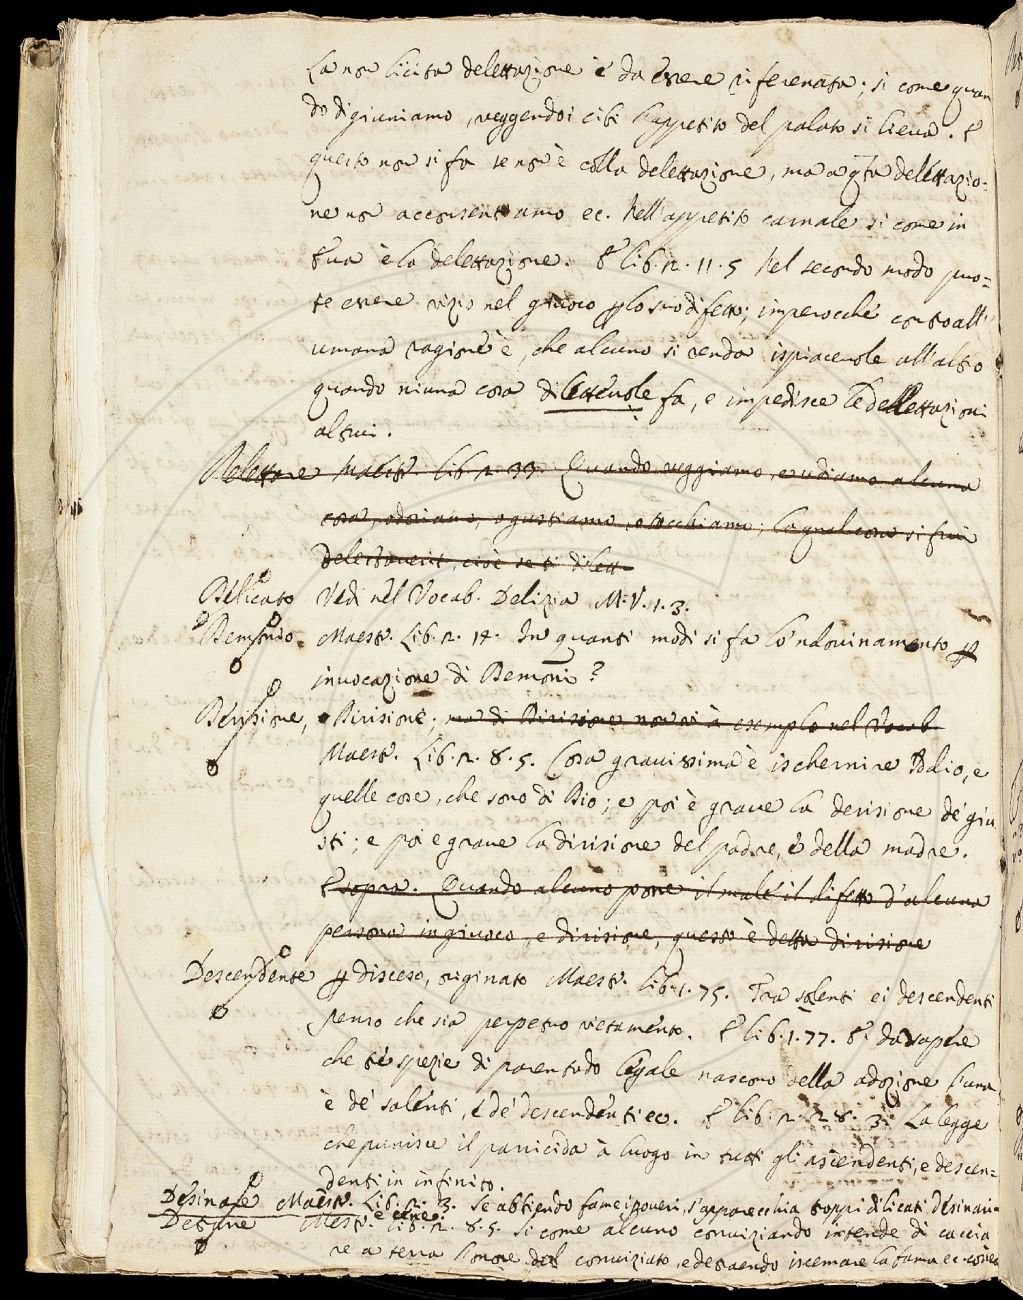 La non licita delettazione è da essere rifrenata; si come quan
do digiuniamo, veggendo i cibi l'appetito del palato si lieva. E
questo non si fa se non è colla delettazione, ma a qta delettazio-
ne no acconsentiamo ec. Nell'appetito carnale si come in
è la delettazione. E lib. 2. 11. 5 Nel secondo modo puo-
te essere vizio nel giuoco p lo suo difetto; imperocchè contro all'
umana ragione è, che alcuno si renda ispiacevole all'altro
quando niuna cosa dilettevole fa, e impedisce le delettazioni
altrui.
Delettare Maest. lib. 2. 33. Quando veggiamo, e udiamo alcuna
cosa, odoriamo, o gustiamo, o tocchiamo; la qual cosa si
cioè se ti
Delicato Vedi nel Vocab. Delizia M. V. 1. 3.
Demonio. Maest. Lib. 2. 14. In quanti modi si fa lo 'ndovinamento p
invocazione di Demoni?
Derisione, e Dirisione; ma di Dirisione non vi à esemplo nel Vocab.
Maest. Lib. 2. 8. 5. Cosa gravissima è ischernire Iddio, e
quelle cose, che sono di Dio; e poi è grave la derisione de' giu
sti; e poi e grave la dirisione del padre, e della madre.
E sopra. Quando alcuno pone il male il difetto d'alcuna
persona in giuoco, e dirisione, questo è detta dirisione
Descendente p disceso, originato Maest. lib. 1. 75. Tra salenti e i descendenti
penso che sia perpetuo vietamento. E lib. 1. 77. E da sapere
che tre spezie di parentado legale nascono della adozione l'una
è de' salenti, e de' descendenti ec. E lib. 2. 28. 3. La legge
che punisce il parricida à luogo in tutti gli ascendenti, e descen-
denti in infinito.
Desinare Maest. Lib. 2. 3. Se abbiendo fame i poveri, s'apparecchia troppi dilicati desinari
e cene.
Maest. Lib. 2. 8. 5. Si come alcuno conviziando intende di caccia
re a terra l'onore del conviziato, e detraendo iscemare la fama ec. così